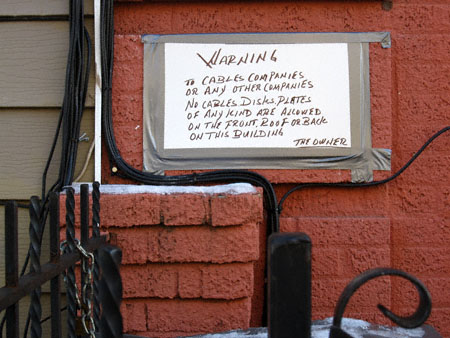 WARNING
TO CABLES COMPANIES
OR ANY OTHER COMPANIES
NO CABLES DISKS, PLATES
OF ANY KIND ARE ALLOWED
ON THE FRONT, ROOF OR BACK
ON THIS BUILDING
THE OWNER